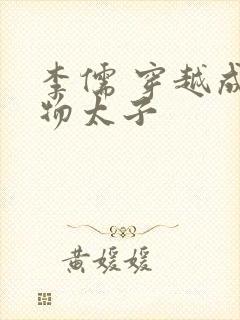 李儒 穿越成
物太子
黄媛媛